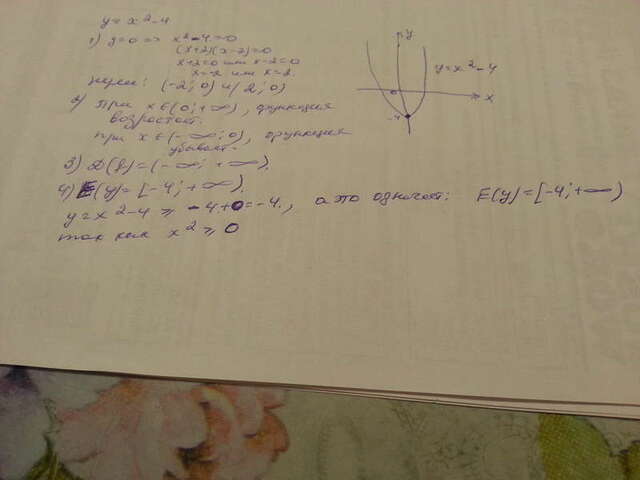 y = x² - 4
1) y=0 => x²-4=0
(x+2)(x-2)=0
x+2=0 или x-2=0
x=-2 или x=2.
нули: (-2; 0) и (2; 0)
2) при x∈(0; +∞), функция
возрастает.
при x∈(-∞; 0), функция
убывает.
3) D(f)=(-∞; +∞).
4) E(y)=[-4; +∞).
y=x²-4 ⩾ -4+0=-4., а это означает: E(y)=[-4; +∞)
так как x² ⩾ 0
y
y=x²-4
0
x
-4